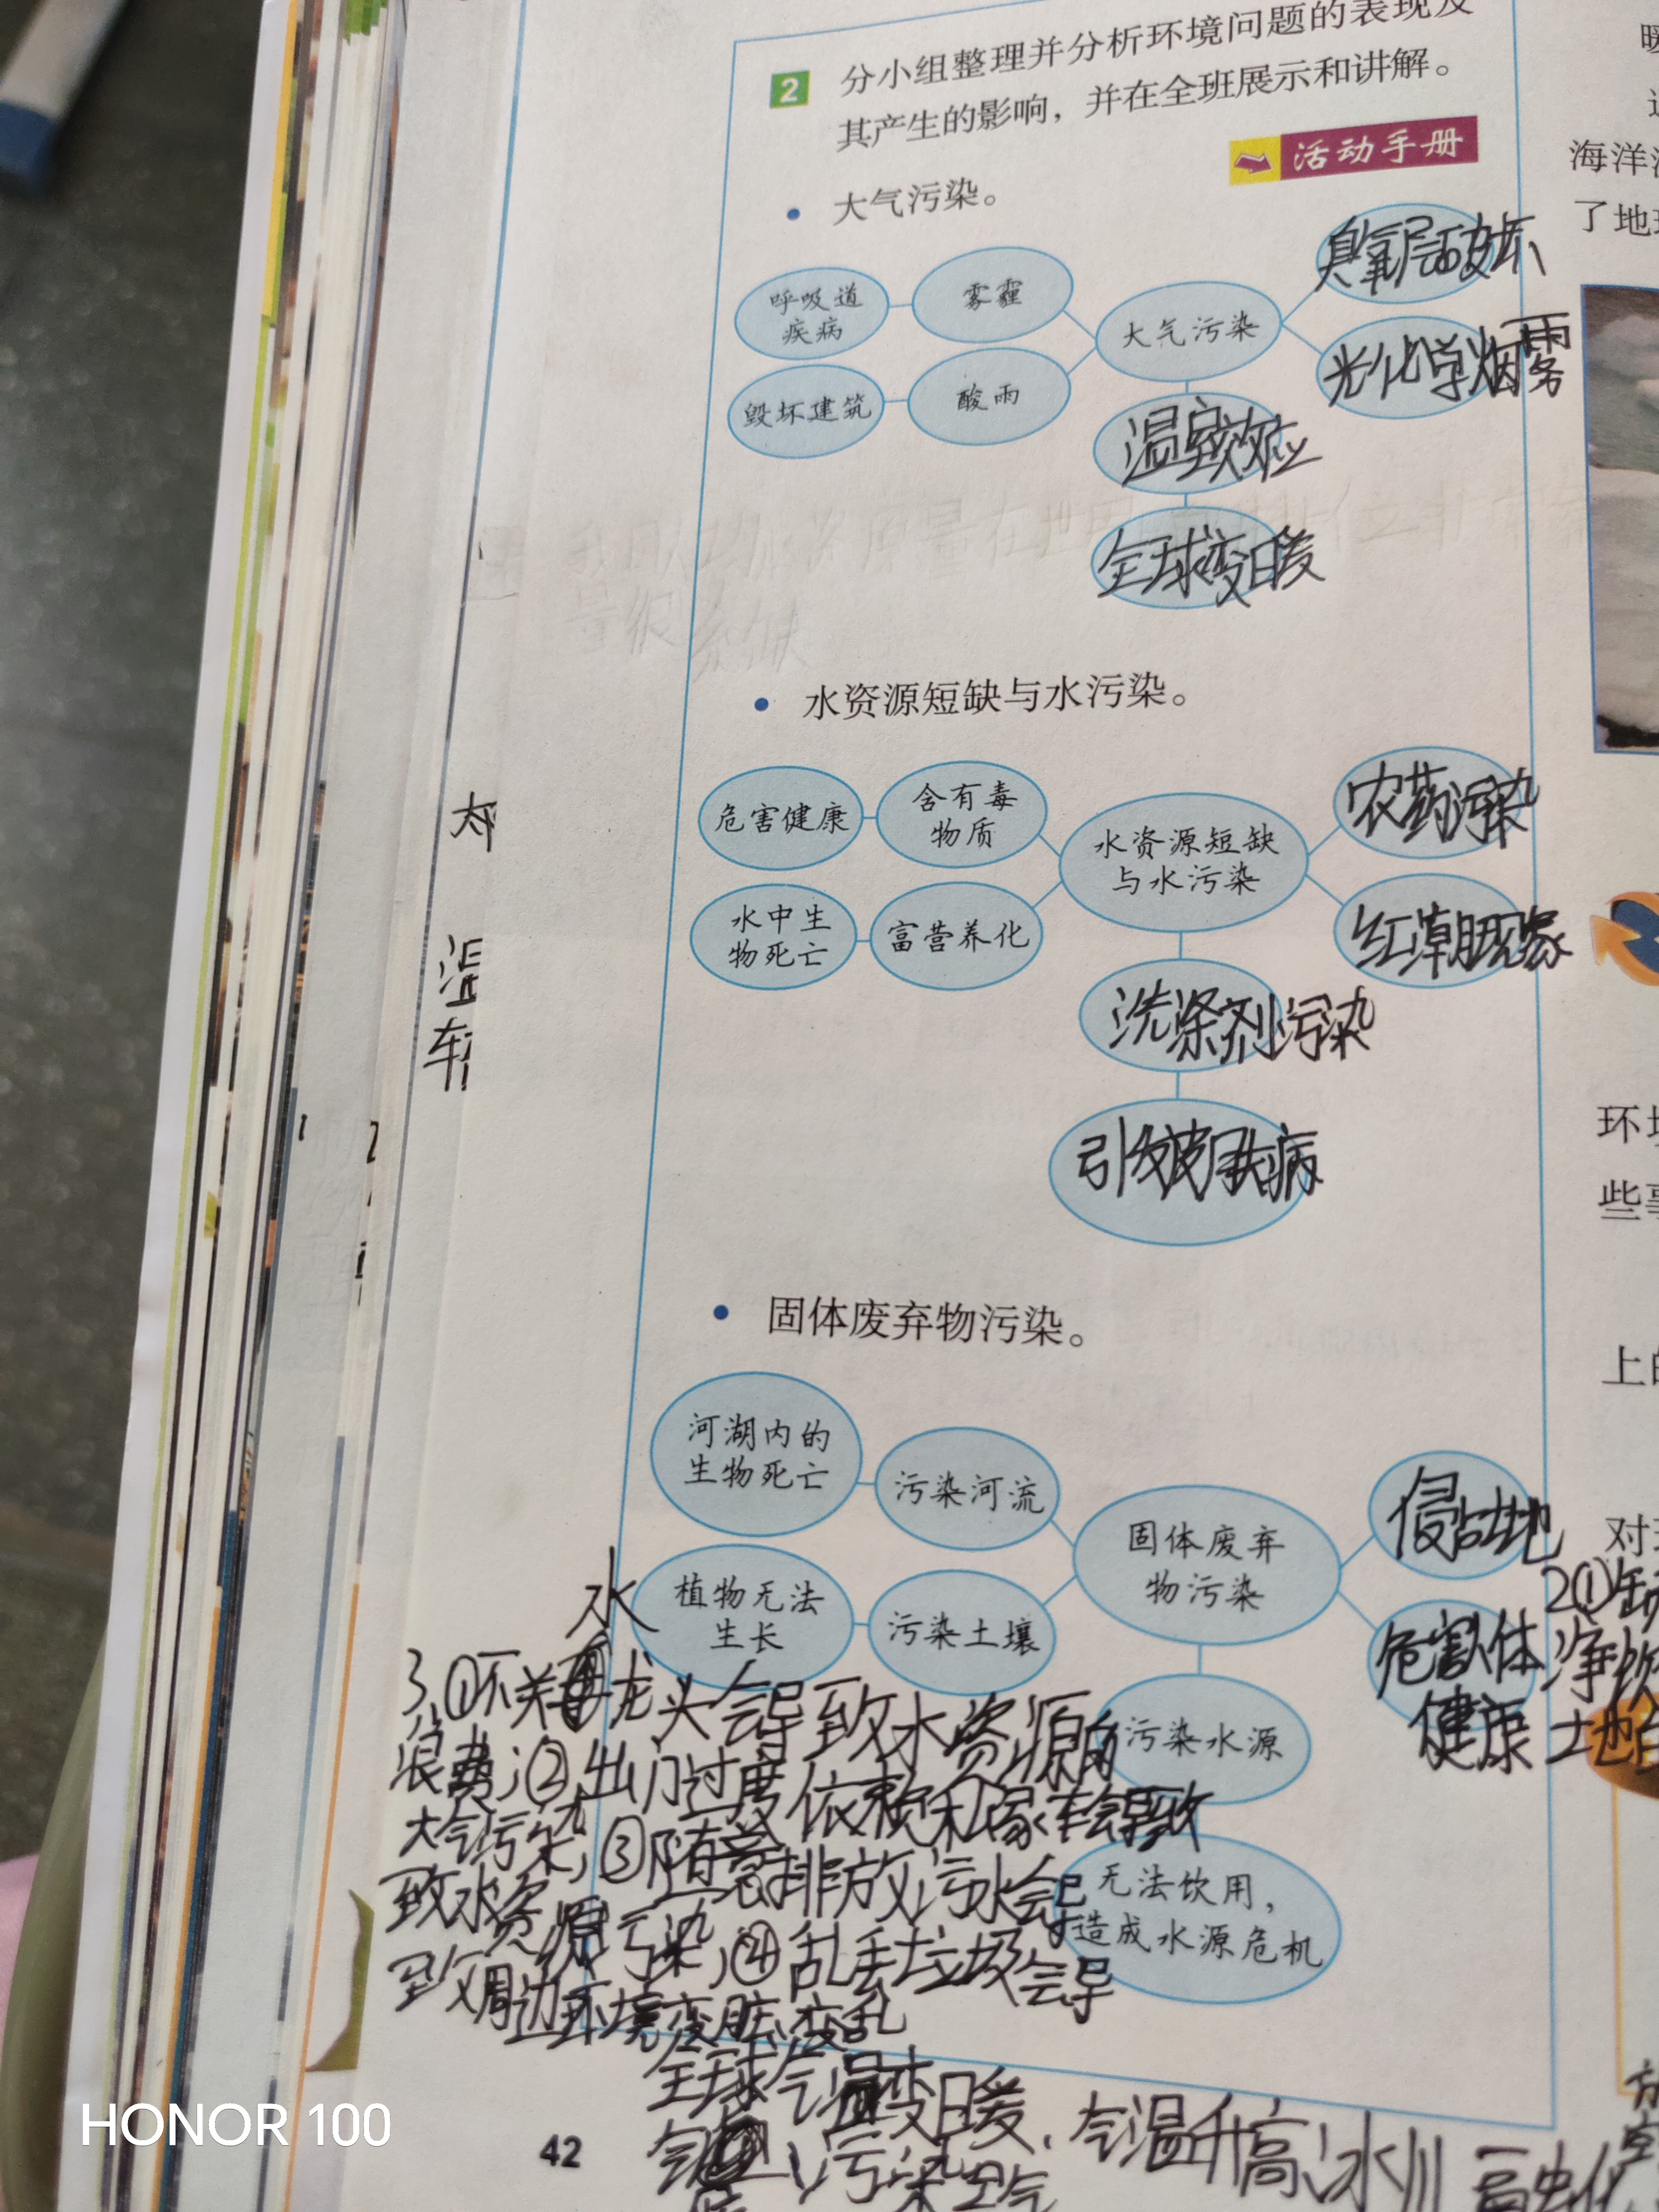 2 分小组整理并分析环境问题的表现及
其产生的影响，并在全班展示和讲解。
活动手册
• 大气污染。
呼吸道
疾病
雾霾
大气污染
臭氧层破坏
毁坏建筑
酸雨
光化学烟雾
温室效应
全球变暖
• 水资源短缺与水污染。
危害健康
含有毒
物质
水资源短缺
与水污染
农药污染
水中生
物死亡
富营养化
红潮现象
洗涤剂污染
引发皮肤病
• 固体废弃物污染。
河湖内的
生物死亡
污染河流
固体废弃
物污染
侵占土地
植物无法
生长
污染土壤
危害人体
健康
污染水源
无法饮用，
造成水源危机
水
3.①不关龙头会导致水资源的
浪费；②出门过度依赖私家车会导致
大气污染；③随意排放污水会导
致水资源污染；④乱丢垃圾会导
致周边环境变脏变乱
全球气温变暖、气温升高、冰川
污染空气
42
海洋
了地
环
些
上的
对
2①
净饮
土地
HONOR 100